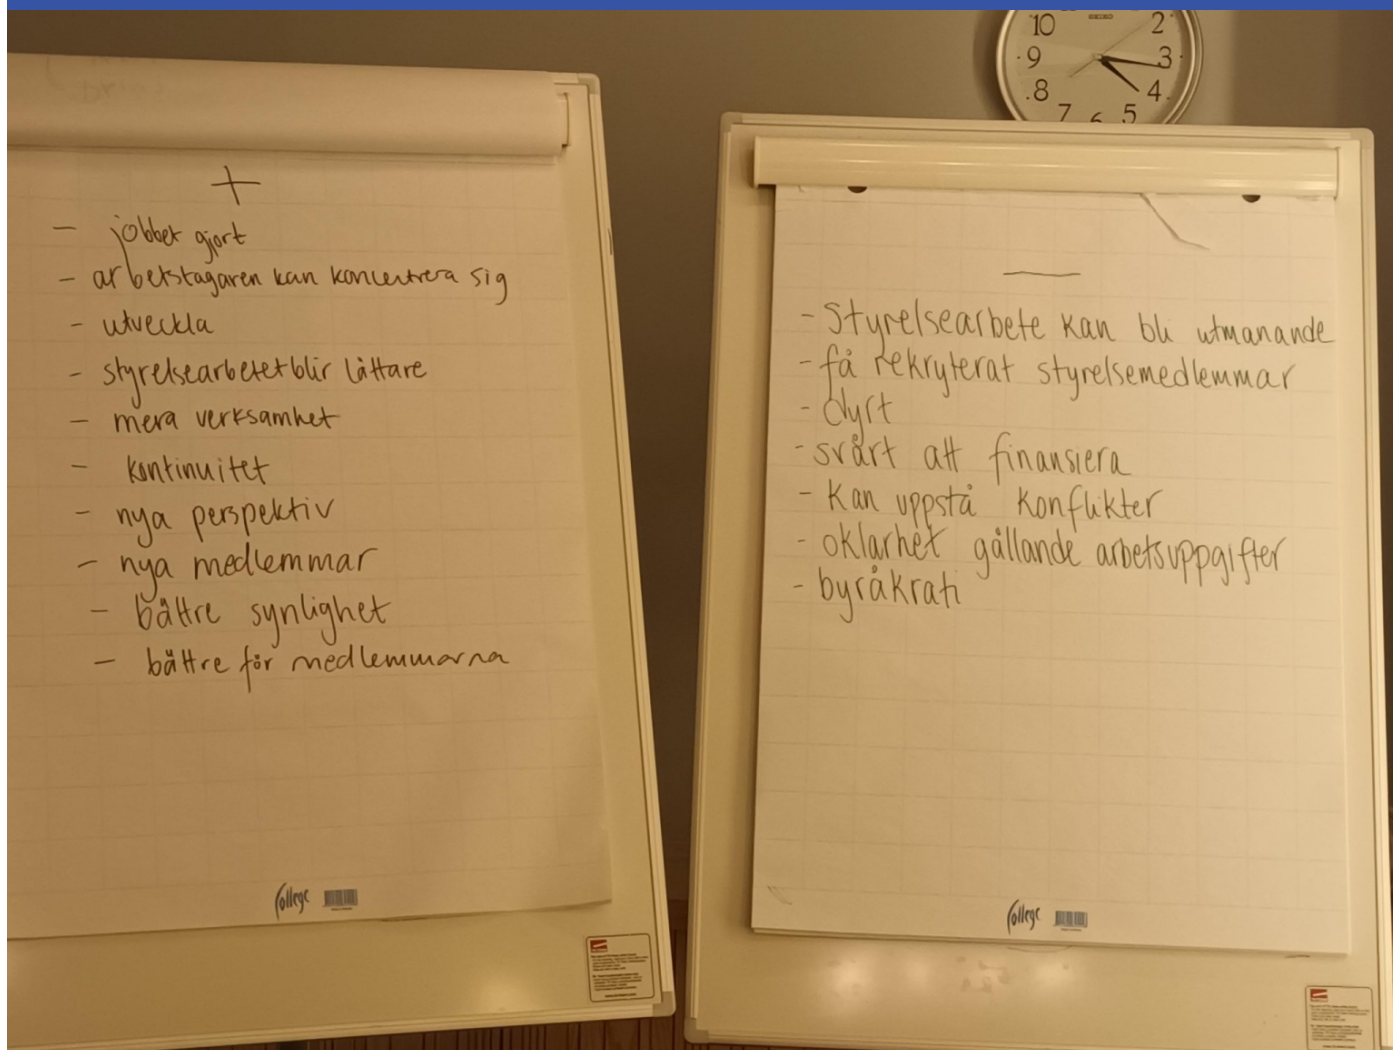 +
- jobbet gjort
- arbetstagaren kan koncentrera sig
- utveckla
- styrelsearbetet blir lättare
- mera verksamhet
- kontinuitet
- nya perspektiv
- nya medlemmar
- bättre synlighet
- bättre för medlemmarna
College
10 2
9 3
8 4
7 6 5
SEIKO
—
- Styrelsearbete kan bli utmanande
- få rekryterat styrelsemedlemmar
- dyrt
- svårt att finansiera
- Kan uppstå konflikter
- oklarhet gällande arbetsuppgifter
- byråkrati
College